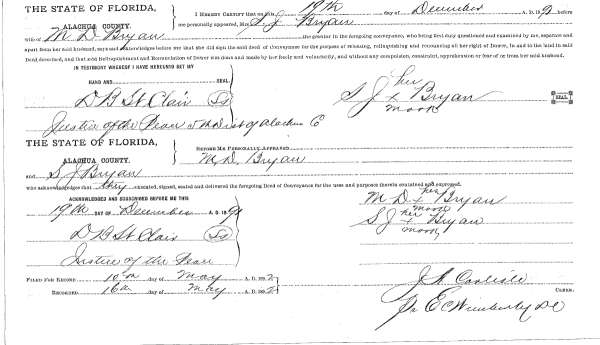 THE STATE OF FLORIDA,
ALACHUA COUNTY.
I HEREBY CERTIFY that on this 19th day of December A. D. 189 before
me personally appeared, Mrs S. J. Bryan
wife of M D Bryan the grantor in the foregoing conveyance, who being first duly questioned and examined by me, separate and
apart from her said husband, says and acknowledges before me that she did sign the said deed of conveyance for the purpose of releasing, relinquishing and renouncing all her right of Dower, in and to the land in said
Deed described, and that said Relinquishment and Renunciation of Dower was done and made by her freely and voluntarily, and without any compulsion, constraint, apprehension or fear of or from her said husband.
IN TESTIMONY WHEREOF I HAVE HEREUNTO SET MY
HAND AND SEAL
D B St Clair
Justice of the Peace of Alachua C
S J her x mark Bryan SEAL
THE STATE OF FLORIDA,
ALACHUA COUNTY.
BEFORE ME PERSONALLY APPEARED
M. D. Bryan
AND S J Bryan
who acknowledges that they executed, signed, sealed and delivered the foregoing Deed of Conveyance for the uses and purposes therein contained and expressed.
ACKNOWLEDGED AND SUBSCRIBED BEFORE ME THIS
19th DAY OF December A. D. 189
D B St Clair
Justice of the Peace
M D x mark Bryan
S J her x mark Bryan
FILED FOR RECORD 10th day of May A. D. 1892
RECORDED 16th day of May A. D. 1892
CLERK.
E C Wimberly DC